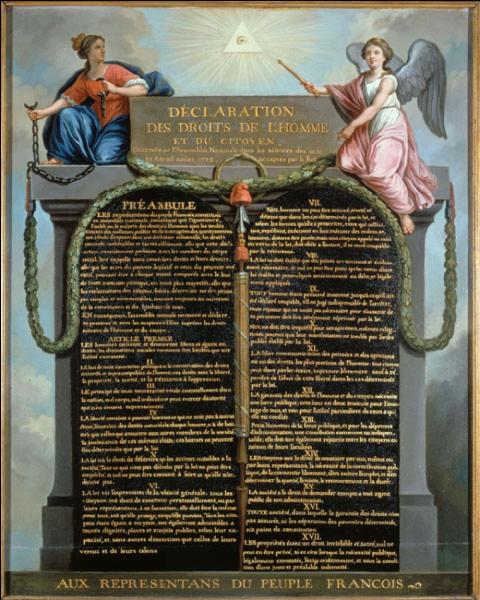 DÉCLARATION
DES DROITS DE L'HOMME
ET DU CITOYEN,
Décrétés par l'Assemblée Nationale dans les séances des 20, 21
août 1789, acceptés par le Roi
PRÉAMBULE
LES représentans du peuple François, constitués
en assemblée nationale, considérant que l'ignorance,
l'oubli ou le mépris des droits de l'homme sont les seules
causes des malheurs publics et de la corruption des gouvernemens
ont résolu d'exposer dans une déclaration solemnelle, les droits
naturels, inaliénables et sacrés de l'homme; afin que cette déclaration,
constamment présente à tous les membres du corps
social, leur rappelle sans cesse leurs droits et leurs devoirs;
afin que les actes du pouvoir législatif et ceux du pouvoir exécutif,
pouvant être à chaque instant comparés avec le but
de toute institution politique, en soient plus respectés; afin que
les réclamations des citoyens, fondées désormais sur des principes
simples et incontestables, tournent toujours au maintien
de la constitution et du bonheur de tous.
EN conséquence, l'assemblée nationale reconnoit et déclare
en présence et sous les auspices de l'Etre suprême les droits
suivans de l'homme et du citoyen.
ARTICLE PREMIER
LES hommes naissent et demeurent libres et égaux en
droits. les distinctions sociales ne peuvent être fondées que sur
l'utilité commune.
II.
LE but de toute association politique est la conservation des droits
naturels et imprescriptibles de l'homme; ces droits sont la liberté,
la propriété, la sureté, et la résistance à l'oppression.
III
LE principe de toute souveraineté réside essentiellement dans
la nation, nul corps, nul individu ne peut exercer d'autorité
qui n'en émane expressément.
IV
LA liberté consiste à pouvoir faire tout ce qui ne nuit pas à autrui
Ainsi, l'exercice des droits naturels de chaque homme, n'a de bornes
que celles qui assurent aux autres membres de la société
la jouissance de ces mêmes droits; ces bornes ne peuvent
être déterminées que par la loi
V.
LA loi n'a le droit de défendre que les actions nuisibles à la
société. Tout ce qui n'est pas défendu par la loi ne peut être
empêché, et nul ne peut être contraint à faire ce qu'elle n'ordonne
pas.
VI.
LA loi est l'expression de la volonté générale; tous les
citoyens ont droit de concourir personnellement, ou par
leurs représentans, à sa formation; elle doit être la même
pour tous, soit qu'elle protege, soit qu'elle punisse. Tous les citoyens
étans égaux à ses yeux, sont également admissibles à
toutes dignités, places et emplois publics, selon leur capacité,
et sans autres distinction que celles de leurs
vertus et de leurs talens
VII.
NUL homme ne peut être accusé, arreté, ni
détenu que dans les cas déterminés par la loi, et
selon les formes qu'elle a prescrites, ceux qui sollicitent,
expédient, exécutent ou font exécuter des ordres arbitraires,
doivent être punis; mais tout citoyen appelé ou saisi
en vertu de la loi, doit obéir à l'instant, il se rend coupable
par la résistance.
VIII.
LA loi ne doit établir que des peines strictement et évidemment
nécessaires, et nul ne peut être puni qu'en vertu d'une
loi établie et promulguée antérieurement au délit, et légalement
appliquée.
IX.
TOUT homme étant présumé innocent jusqu'à ce qu'il ait
été déclaré coupable, s'il est jugé indispensable de l'arrêter,
toute rigueur qui ne seroit pas nécessaire pour s'assurer de
sa personne doit être sévérement réprimée par la loi.
X.
NUL ne doit être inquiété pour ses opinions, mêmes religieuses
pourvu que leur manifestation ne trouble pas l'ordre
public établi par la loi.
XI.
LA libre communication des pensées et des opinions est
un des droits les plus précieux de l'homme: tout citoyen
peut donc parler, écrire, imprimer librement: sauf à répondre
de l'abus de cette liberté dans les cas déterminés
par la loi.
XII.
LA garantie des droits de l'homme et du citoyen nécessite
une force publique: cette force est donc instituée pour l'avantage
de tous, et non pour l'utilité particuliere de ceux à qui
elle est confiée.
XIII.
POUR l'entretien de la force publique, et pour les dépenses
d'administration, une contribution commune est indispensable;
elle doit être également répartie entre les citoyens en
raison de leurs facultés.
XIV.
LES citoyens ont le droit de constater par eux même ou
par leurs représentans, la nécessité de la contribution publique,
de la consentir librement, d'en suivre l'emploi, et d'en
déterminer la quotité, l'assiette, le recouvrement et la durée.
XV.
LA société a le droit de demander compte à tout agent
public de son administration.
XVI.
TOUTE société, dans laquelle la garantie des droits n'est
pas assurée, ni la séparation des pouvoirs déterminée,
n'a point de constitution.
XVII.
LES propriétés étant un droit inviolable et sacré, nul ne
peut en être privé, si ce n'est lorsque la nécessité publique,
légalement constatée, l'exige évidemment, et sous la condition
d'une juste et préalable indemnité.
AUX REPRESENTANS DU PEUPLE FRANCOIS